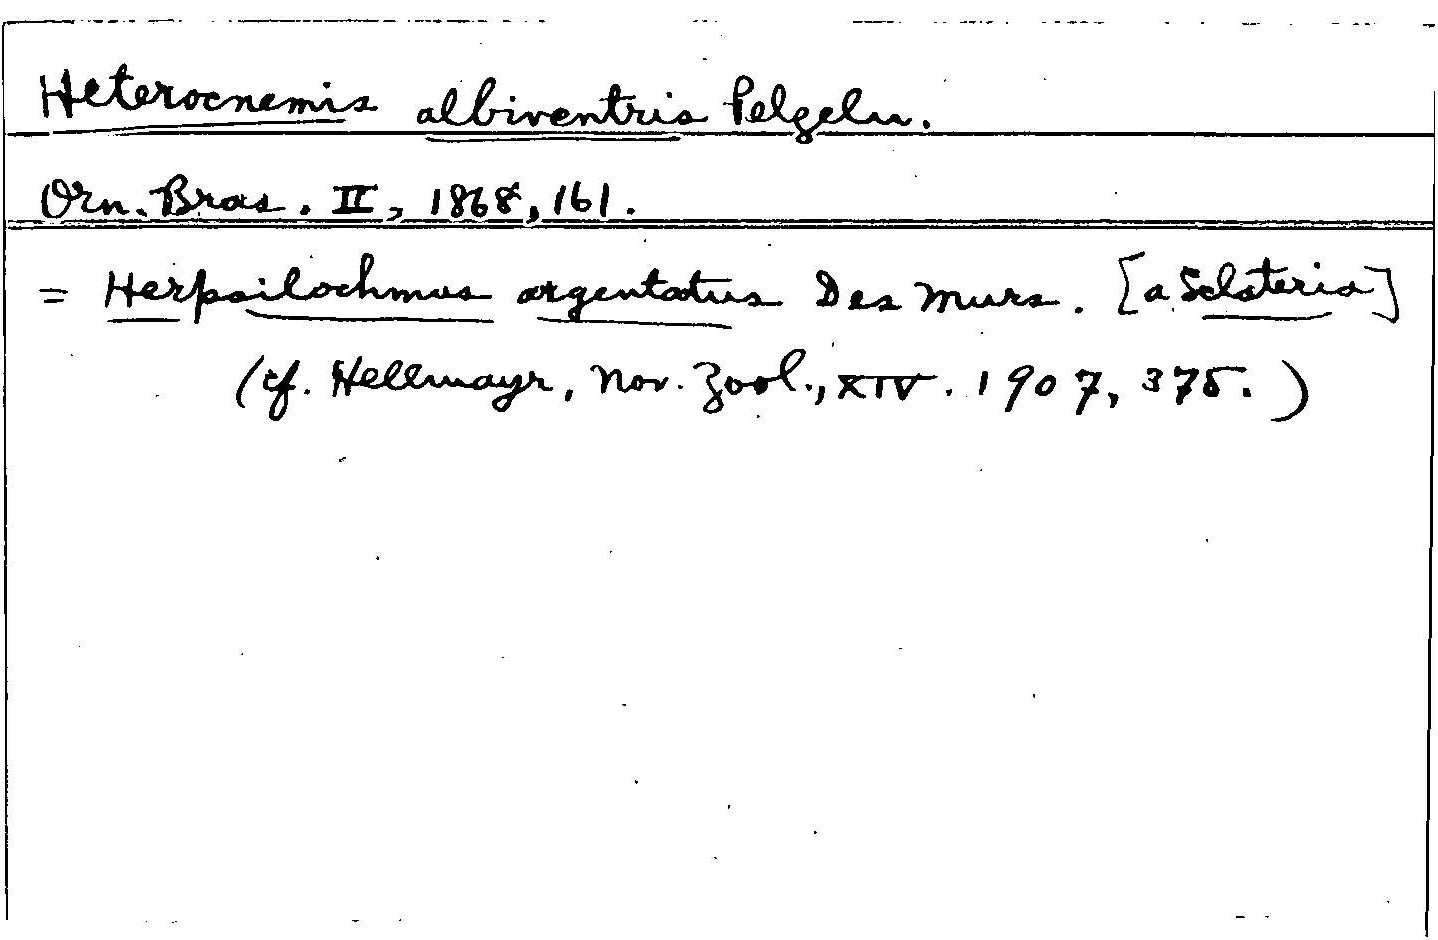 Heterocnemis albiventris Pelzeln.
Orn. Bras. II, 1868, 161.
= Herpsilochmus argentatus Des Murs. [a Sclateria]
(cf. Hellmayr, Nov. Zool., XIV. 1907, 375.)